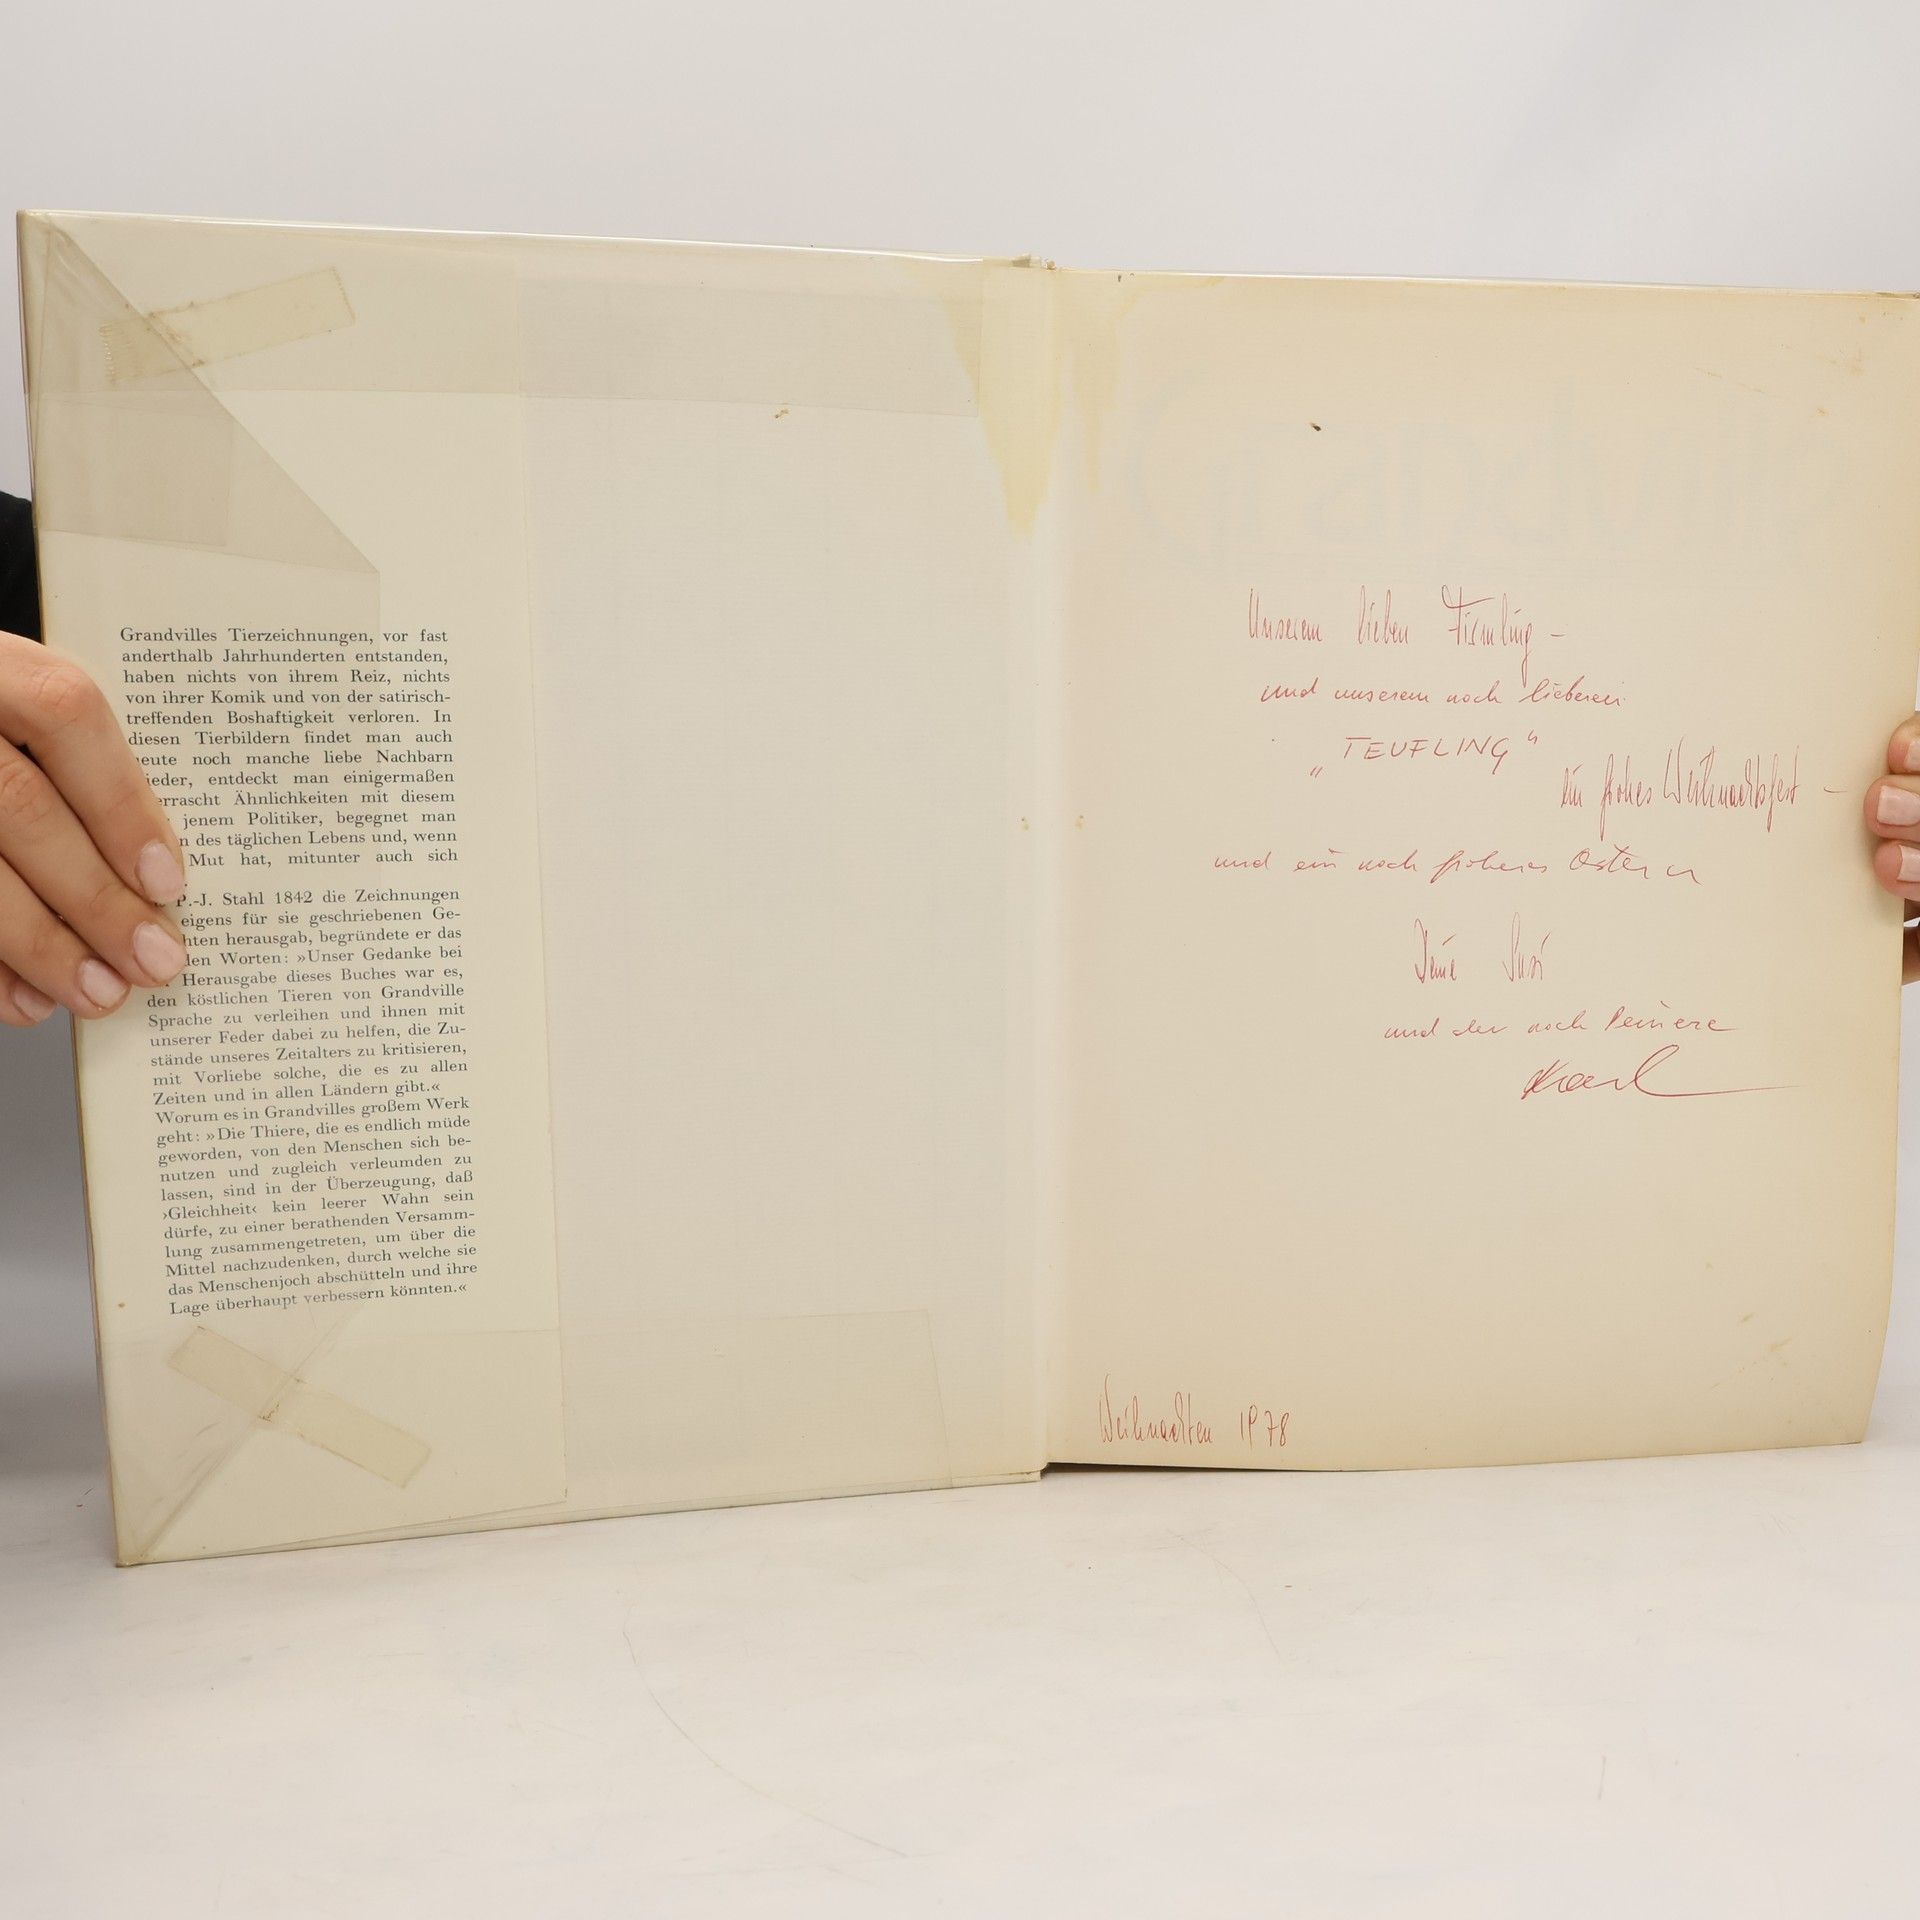 Grandvilles Tierzeichnungen, vor fast
anderthalb Jahrhunderten entstanden,
haben nichts von ihrem Reiz, nichts
von ihrer Komik und von der satirisch-
treffenden Boshaftigkeit verloren. In
diesen Tierbildern findet man auch
eute noch manche liebe Nachbarn
ieder, entdeckt man einigermaßen
errascht Ähnlichkeiten mit diesem
jenem Politiker, begegnet man
n des täglichen Lebens und, wenn
Mut hat, mitunter auch sich
P.-J. Stahl 1842 die Zeichnungen
eigens für sie geschriebenen Ge-
hten herausgab, begründete er das
den Worten: »Unser Gedanke bei
Herausgabe dieses Buches war es,
den köstlichen Tieren von Grandville
Sprache zu verleihen und ihnen mit
unserer Feder dabei zu helfen, die Zu-
stände unseres Zeitalters zu kritisieren,
mit Vorliebe solche, die es zu allen
Zeiten und in allen Ländern gibt.«
Worum es in Grandvilles großem Werk
geht: »Die Thiere, die es endlich müde
geworden, von den Menschen sich be-
nutzen und zugleich verleumden zu
lassen, sind in der Überzeugung, daß
›Gleichheit‹ kein leerer Wahn sein
dürfe, zu einer berathenden Versamm-
lung zusammengetreten, um über die
Mittel nachzudenken, durch welche sie
das Menschenjoch abschütteln und ihre
Lage überhaupt verbessern könnten.«
Unserem lieben Firmling –
und unserem noch lieberen
„TEUFLING“
ein frohes Weihnachtsfest –
und ein noch froheres Ostern
Deine Susi
und der noch Deinere
Karl
Weihnachten 1978